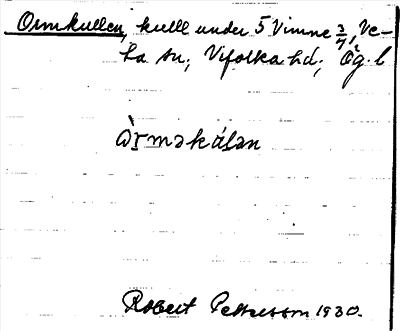 Ormkullen, kulle under 5 Vimne 3/4, Ve-
ta sn; Vifolka hd; Ög. l
òrməkálən
Robert Pettersson 1930.